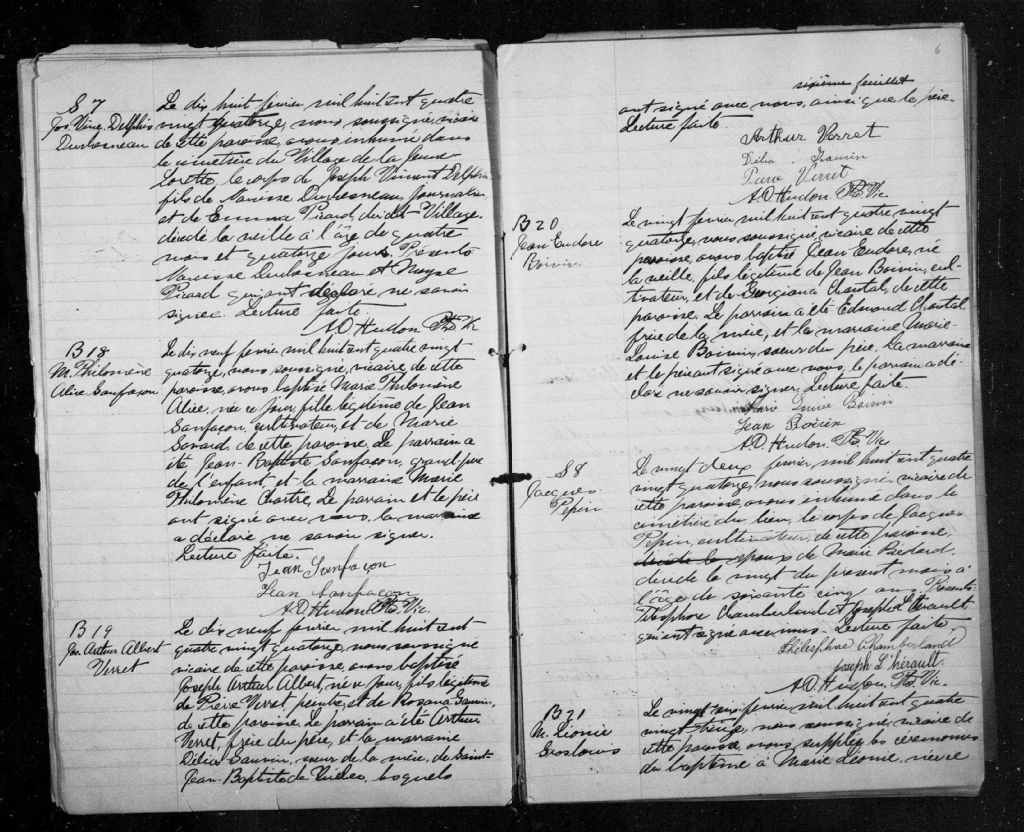 S 7
Jos. Vinc. Delphis
Duchesneau
Le dix huit fevrier mil huit cent quatre
vingt quatorze, nous soussigné, vicaire
de cette paroisse, avons inhumé dans
le cimetière du Village de la Jeune
Lorette, le corps de Joseph Vincent Delphis
fils de Narcisse Duchesneau, Journalier
et de Emma Picard, du dit Village.
décédé la veille à l'âge de quatre
mois et quatorze jours. Présents
Narcisse Duchesneau et Moyse
Picard qui ont déclaré ne savoir
signer. Lecture faite.
A.O. Hudon Ptre Vic.
B 18
M. Philomène
Alice Sanfaçon
Le dix neuf fevrier mil huit cent quatre vingt
quatorze, nous soussigné, vicaire de cette
paroisse, avons baptisé Marie Philomène
Alice, née ce jour, fille légitime de Jean
Sanfaçon, cultivateur, et de Marie
Savard, de cette paroisse. Le parrain a
été Jean-Baptiste Sanfaçon, grand-père
de l'enfant, et la marraine Marie
Philomène Chartré. Le parrain et le père
ont signé avec nous, la marraine
a déclaré ne savoir signer.
Lecture faite.
Jean Sanfaçon
Jean Sanfaçon
A.O. Hudon Ptre Vic.
B 19
Jos. Arthur Albert
Verret
Le dix neuf fevrier mil huit cent
quatre vingt quatorze, nous soussigné
vicaire de cette paroisse, avons baptisé
Joseph Arthur Albert, né ce jour, fils légitime
de Pierre Verret, peintre, et de Rosana Gauvin,
de cette paroisse. Le parrain a été Arthur
Verret, frère du père, et la marraine
Délia Gauvin, sœur de la mère, de Saint-
Jean-Baptiste de Québec, lesquels
6
sixième feuillet
ont signé avec nous, ainsi que le père.
Lecture faite.
Arthur Verret
Délia Gauvin
Pierre Verret
A.O. Hudon Ptre Vic.
B 20
Jean Eudore
Boivin
Le vingt fevrier mil huit cent quatre vingt
quatorze, nous soussigné, vicaire de cette
paroisse, avons baptisé Jean Eudore, né
la veille, fils légitime de Jean Boivin, cul-
tivateur, et de Georgiana Chantal, de cette
paroisse. Le parrain a été Edmond Chantal
frère de la mère, et la marraine Marie-
Louise Boivin, sœur du père. La marraine
et le père ont signé avec nous, le parrain a dé-
claré ne savoir signer. Lecture faite.
Boivin
Jean Boivin
A.O. Hudon Ptre Vic.
S 8
Jacques
Pepin
Le vingt deux fevrier, mil huit cent quatre
vingt quatorze, nous soussigné, vicaire de
cette paroisse, avons inhumé dans le
cimetière du lieu, le corps de Jacques
Pepin, cultivateur, de cette paroisse,
époux de Marie Bedard,
décédé le vingt du présent mois à
l'âge de soixante cinq ans. Présents
Télesphore Chamberland et Joseph L'Hérault
qui ont signé avec nous. Lecture faite.
Thélesphore Chamberland
Joseph L'hérault
A.O. Hudon Ptre Vic.
B 21
M. Léonie
Groslouis
Le vingt fevrier mil huit cent quatre
vingt nous soussigné, vicaire de
cette paroisse, avons suppléé les cérémonies
du baptême à Marie Léonie, née le